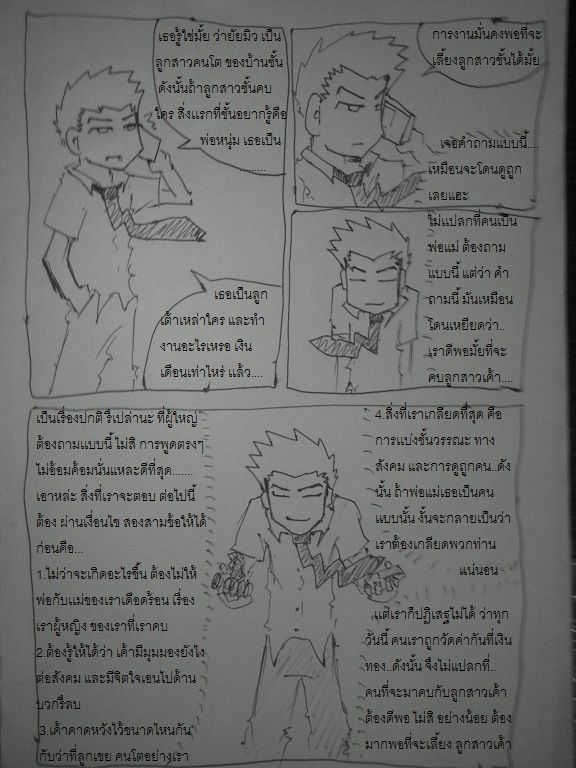 เธอรู้ใช่มั้ย ว่ายัยมิว เป็น
ลูกสาวคนโต ของบ้านชั้น
ดังนั้นถ้าลูกสาวชั้นคบ
ใคร สิ่งแรกที่ชั้นอยากรู้คือ
พ่อหนุ่ม เธอเป็น
.........
เธอเป็นลูก
เต้าเหล่าใคร และทำ
งานอะไรเหรอ เงิน
เดือนเท่าไหร่ แล้ว....
การงานมั่นคงพอที่จะ
เลี้ยงลูกสาวชั้นได้มั้ย
เจอคำถามแบบนี้....
เหมือนจะโดนดูถูก
เลยแฮะ
ไม่แปลกที่คนเป็น
พ่อแม่ ต้องถาม
แบบนี้ แต่ว่า คำ
ถามนี้ มันเหมือน
โดนเหยียดว่า..
เราดีพอมั้ยที่จะ
คบลูกสาวเค้า....
เป็นเรื่องปกติ รึเปล่านะ ที่ผู้ใหญ่
ต้องถามแบบนี้ ไม่สิ การพูดตรงๆ
ไม่อ้อมค้อมนั่นแหละดีที่สุด.......
เอาหล่ะ สิ่งที่เราจะตอบ ต่อไปนี้
ต้อง ผ่านเงื่อนไข สองสามข้อให้ได้
ก่อนคือ...
1.ไม่ว่าจะเกิดอะไรขึ้น ต้องไม่ให้
พ่อกับแม่ของเราเดือดร้อน เรื่อง
เราผู้หญิง ของเราที่เราคบ
2.ต้องรู้ให้ได้ว่า เค้ามีมุมมองยังไง
ต่อสังคม และมีจิตใจเอนไปด้าน
บวกรึลบ
3.เค้าคาดหวังไว้ขนาดไหนกัน
กับว่าที่ลูกเขย คนโตอย่างเรา
4.สิ่งที่เราเกลียดที่สุด คือ
การแบ่งชั้นวรรณะ ทาง
สังคม และการดูถูกคน..ดัง
นั้น ถ้าพ่อแม่เธอเป็นคน
แบบนั้น งั้นจะกลายเป็นว่า
เราต้องเกลียดพวกท่าน
แน่นอน
แต่เราก็ปฏิเสธไม่ได้ ว่าทุก
วันนี้ คนเราถูกวัดค่ากันที่เงิน
ทอง..ดังนั้น จึงไม่แปลกที่..
คนที่จะมาคบกับลูกสาวเค้า
ต้องดีพอ ไม่สิ อย่างน้อย ต้อง
มากพอที่จะเลี้ยง ลูกสาวเค้า